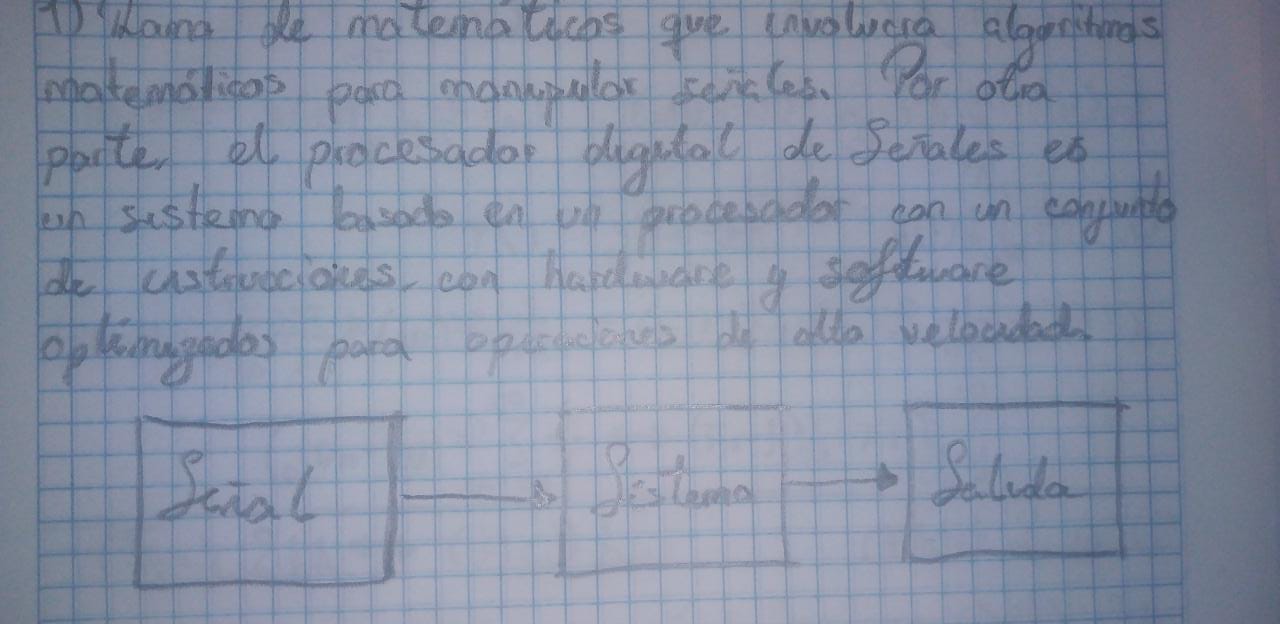 1) Rama de matemáticas que involucra algoritmos
matemáticos para manipular señales. Por otra
parte, el procesador digital de Señales es
un sistema basado en un procesador con un conjunto
de instrucciones, con hardware y software
optimizados para operaciones de alta velocidad.
Señal Sistema Salida